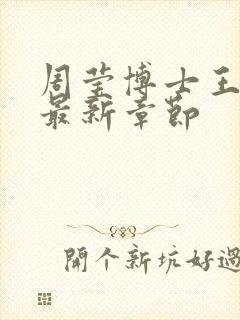 周莹博士王
最新章節
開个新坑好過